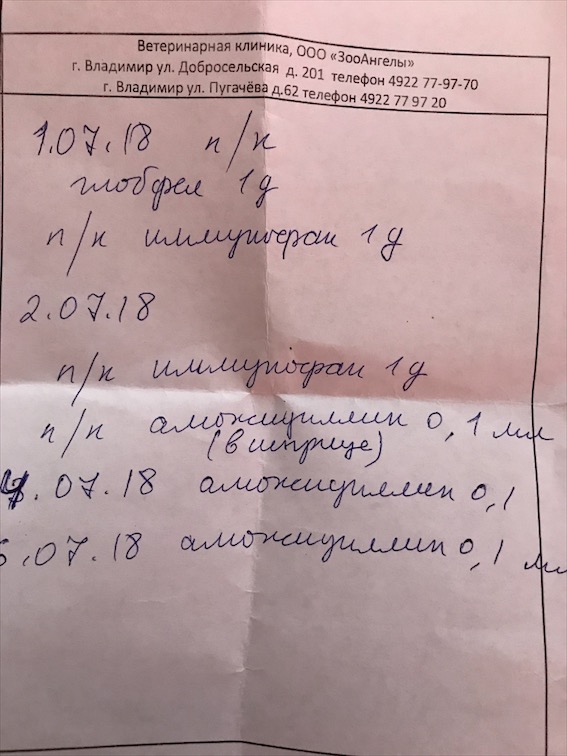 Ветеринарная клиника, ООО «ЗооАнгелы»
г. Владимир ул. Добросельская д. 201 телефон 4922 77-97-70
г. Владимир ул. Пугачёва д.62 телефон 4922 77 97 20
1.07.18 п/к
глобфел 1д
п/к иммунофан 1д
2.07.18
п/к иммунофан 1д
п/к амоксициллин 0,1 мл
(в шприце)
4.07.18 амоксициллин 0,1
6.07.18 амоксициллин 0,1 мл